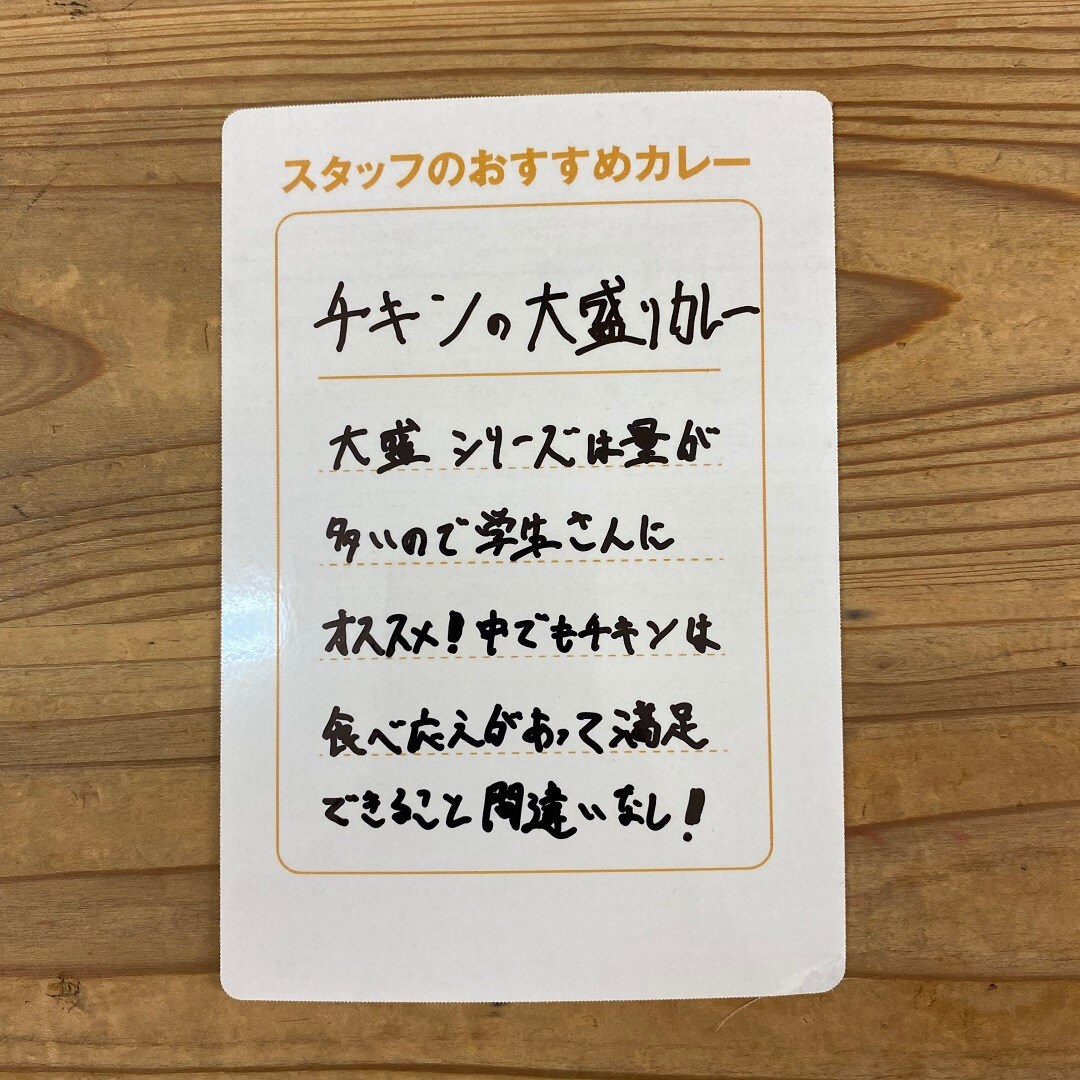 スタッフのおすすめカレー
チキンの大盛りカレー
大盛シリーズは量が
多いので学生さんに
オススメ!中でもチキンは
食べ応えがあって満足
できること間違いなし!